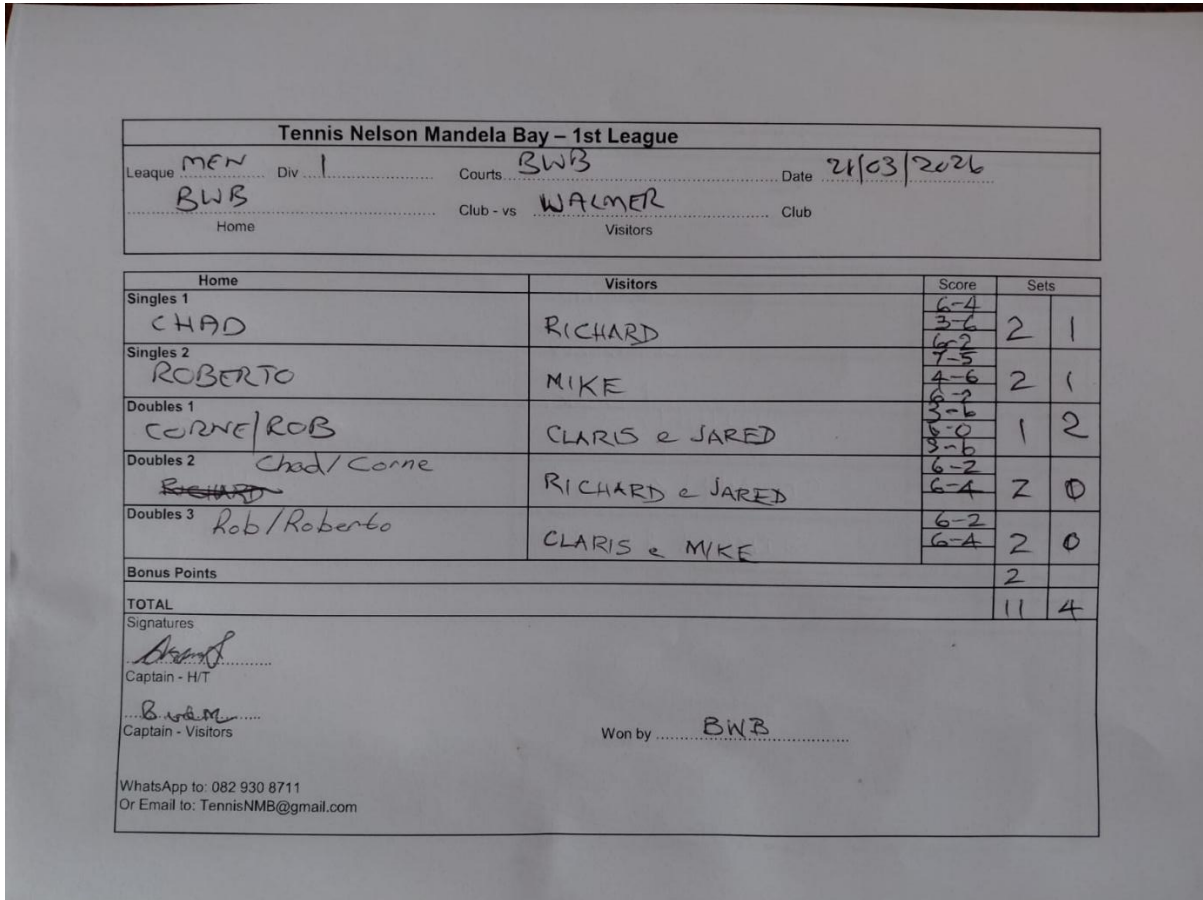 Tennis Nelson Mandela Bay – 1st League
Leaque MEN Div 1 Courts BWB Date 21/03/2026
BWB Club - vs WALMER Club
Home Visitors
Home Visitors Score Sets
Singles 1
CHAD RICHARD 6-4 3-6 6-2 2 1
Singles 2
ROBERTO MIKE 7-5 4-6 6-2 2 1
Doubles 1
CORNE/ROB CLARIS e JARED 3-6 6-0 3-6 1 2
Doubles 2 Chad/Corne
RICHARD RICHARD e JARED 6-2 6-4 2 0
Doubles 3 Rob/Roberto
CLARIS e MIKE 6-2 6-4 2 0
Bonus Points 2
TOTAL 11 4
Signatures
Captain - H/T
Captain - Visitors Won by BWB
WhatsApp to: 082 930 8711
Or Email to: TennisNMB@gmail.com